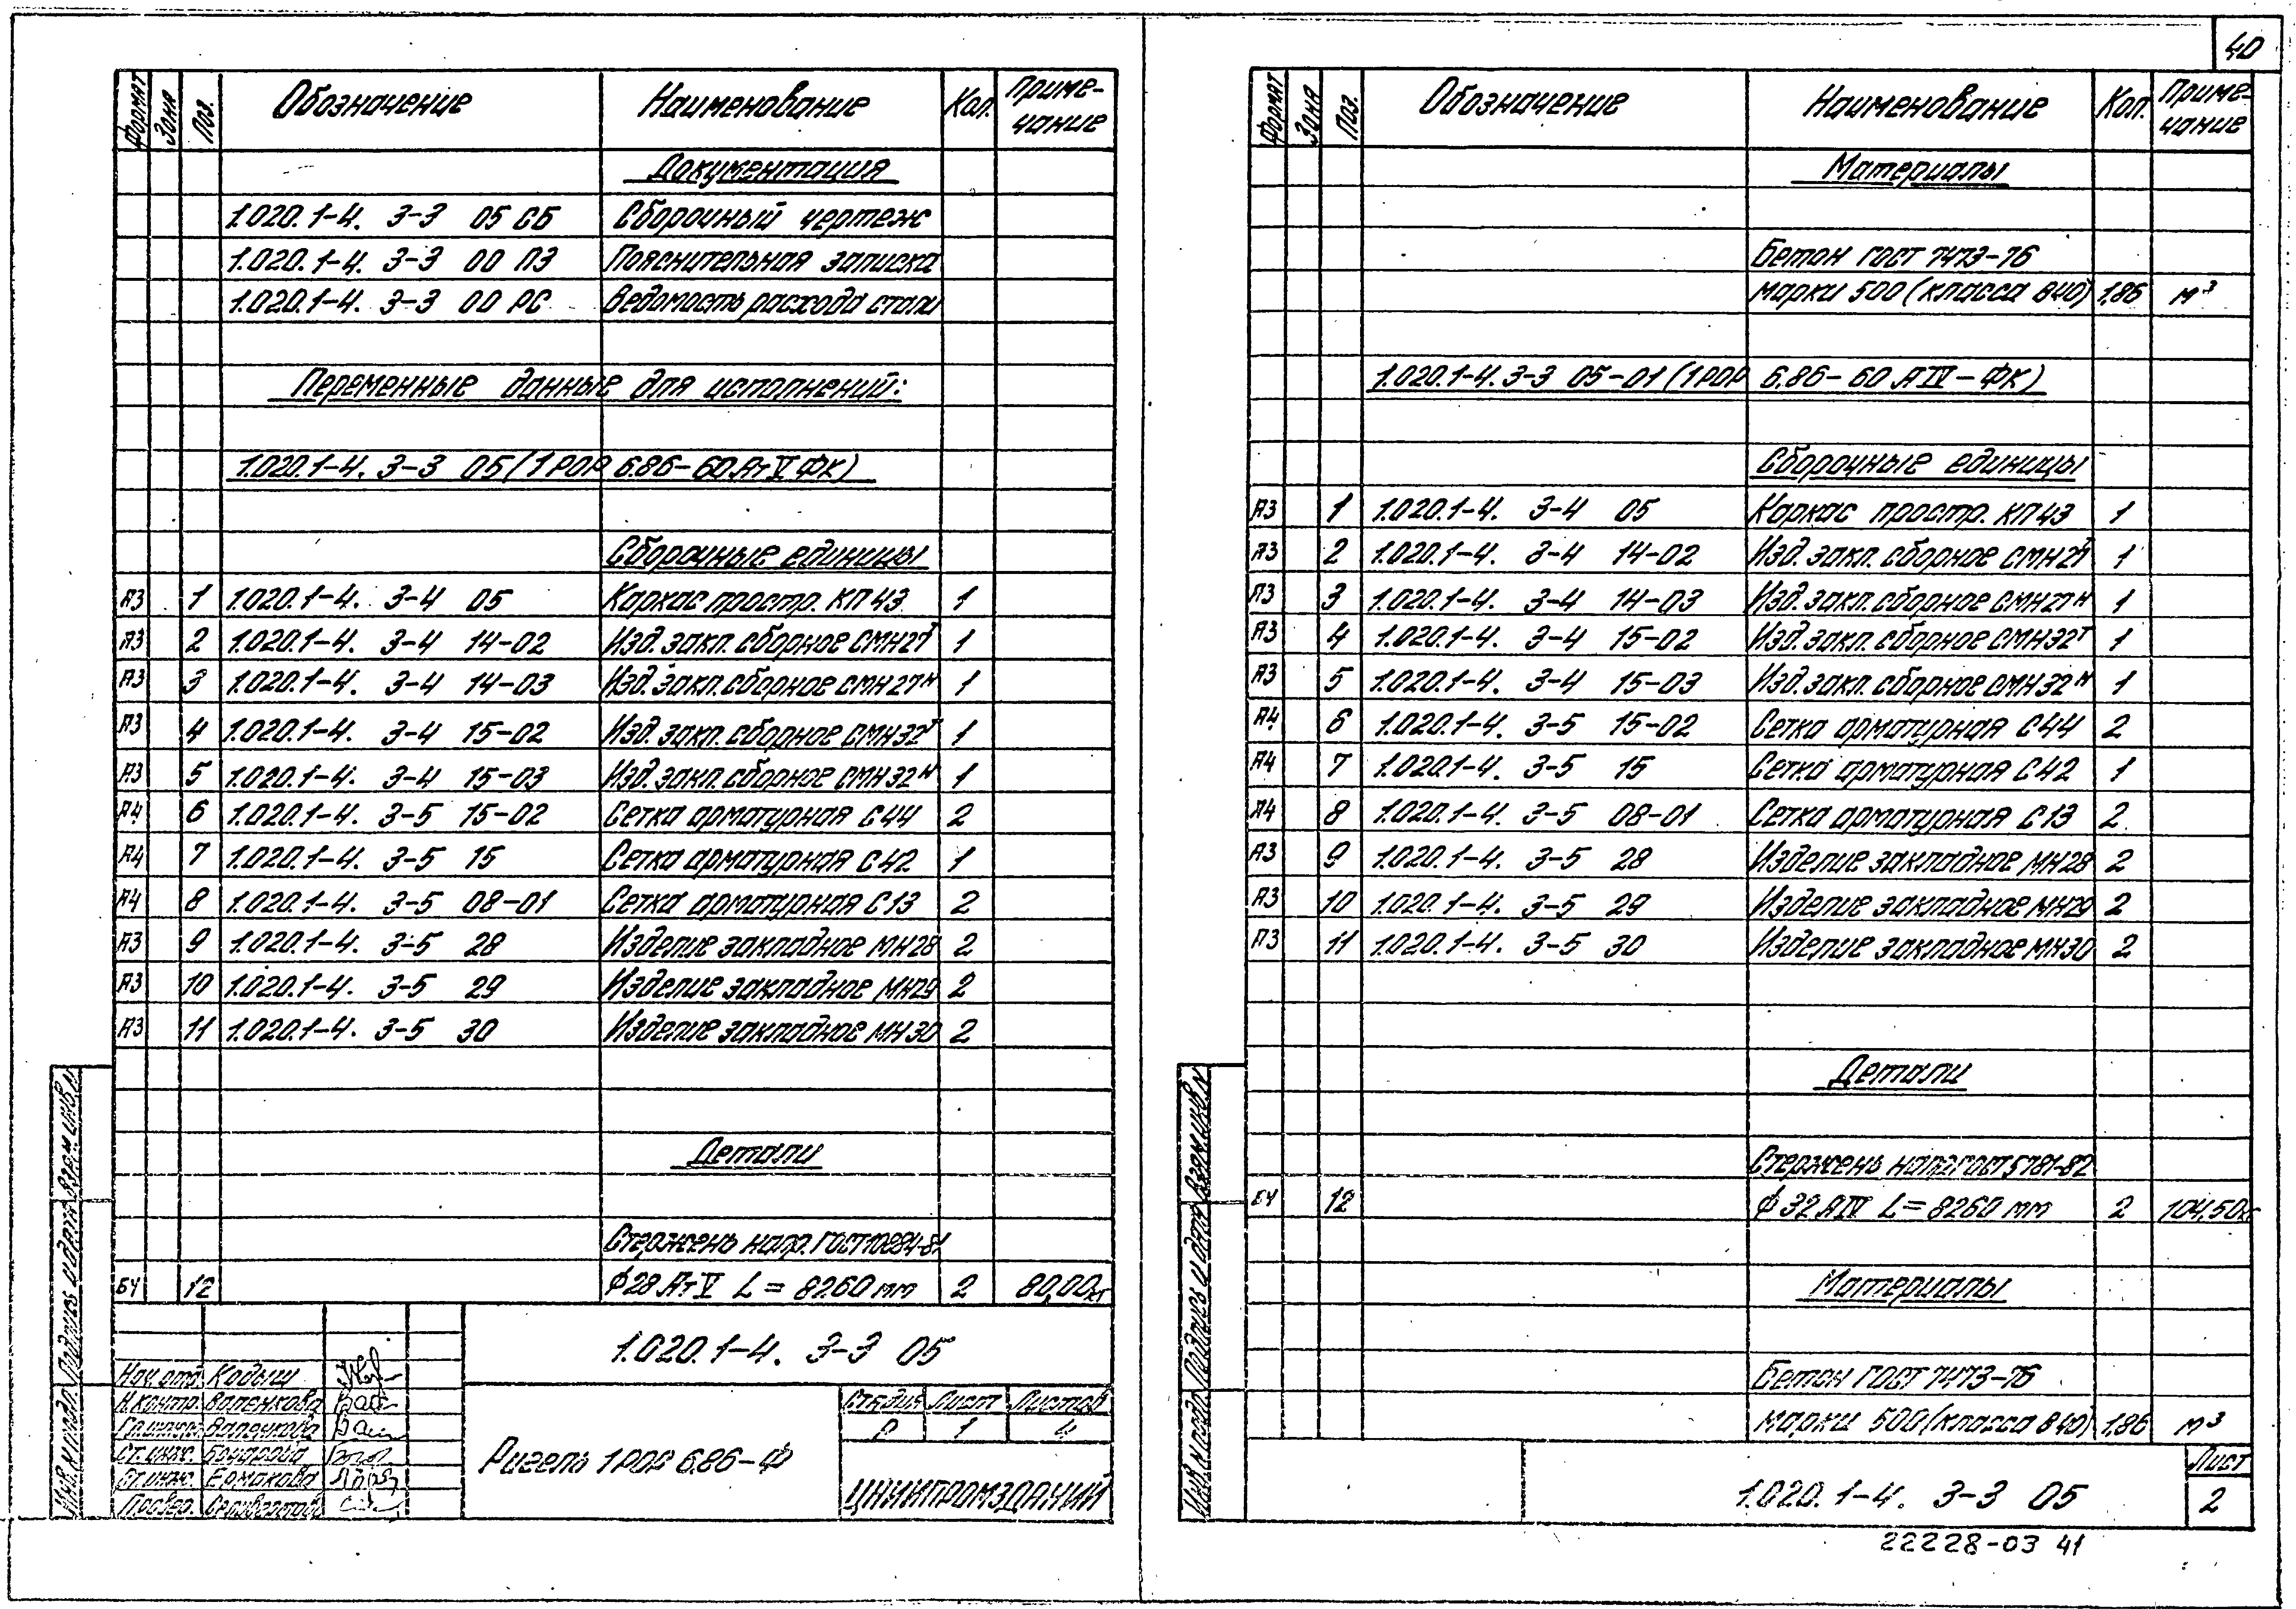 40
Формат Зона Поз. Обозначение Наименование Кол. Приме-чание
Документация
1.020.1-4. 3-3 05 СБ Сборочный чертеж
1.020.1-4. 3-3 00 ПЗ Пояснительная записка
1.020.1-4. 3-3 00 РС Ведомость расхода стали
Переменные данные для исполнений:
1.020.1-4. 3-3 05 (1РОР 6.86-60 АтV ФК)
Сборочные единицы
А3 1 1.020.1-4. 3-4 05 Каркас простр. КП43 1
А3 2 1.020.1-4. 3-4 14-02 Изд. закл. сборное СМН27т 1
А3 3 1.020.1-4. 3-4 14-03 Изд. закл. сборное СМН27н 1
А3 4 1.020.1-4. 3-4 15-02 Изд. закл. сборное СМН32т 1
А3 5 1.020.1-4. 3-4 15-03 Изд. закл. сборное СМН32н 1
А4 6 1.020.1-4. 3-5 15-02 Сетка арматурная С44 2
А4 7 1.020.1-4. 3-5 15 Сетка арматурная С42 1
А4 8 1.020.1-4. 3-5 08-01 Сетка арматурная С13 2
А3 9 1.020.1-4. 3-5 28 Изделие закладное МН28 2
А3 10 1.020.1-4. 3-5 29 Изделие закладное МН29 2
А3 11 1.020.1-4. 3-5 30 Изделие закладное МН30 2
Детали
Стержень напр. ГОСТ 10884-81
БЧ 12 ϕ28 АтV L=8260мм 2 80,00кг
1.020.1-4. 3-3 05
Нач. отд. Кодыш
Н.контр. Валенкова
Валенкова
Ст. инж. Бочарова
Ст. инж. Ермакова
Провер.
Ригель 1РОР 6.86-Ф
Стадия Лист Листов
Р 1 4
ЦНИИПРОМЗДАНИЙ
Инв. № подл. Подпись и дата Взам. инв. №
Формат Зона Поз. Обозначение Наименование Кол. Приме-чание
Материалы
Бетон ГОСТ 7473-76
марки 500 (класса В40) 1.86 м³
1.020.1-4. 3-3 05-01 (1РОР 6.86-60 АIV-ФК)
Сборочные единицы
А3 1 1.020.1-4. 3-4 05 Каркас простр. КП43 1
А3 2 1.020.1-4. 3-4 14-02 Изд. закл. сборное СМН27т 1
А3 3 1.020.1-4. 3-4 14-03 Изд. закл. сборное СМН27н 1
А3 4 1.020.1-4. 3-4 15-02 Изд. закл. сборное СМН32т 1
А3 5 1.020.1-4. 3-4 15-03 Изд. закл. сборное СМН32н 1
А4 6 1.020.1-4. 3-5 15-02 Сетка арматурная С44 2
А4 7 1.020.1-4. 3-5 15 Сетка арматурная С42 1
А4 8 1.020.1-4. 3-5 08-01 Сетка арматурная С13 2
А3 9 1.020.1-4. 3-5 28 Изделие закладное МН28 2
А3 10 1.020.1-4. 3-5 29 Изделие закладное МН29 2
А3 11 1.020.1-4. 3-5 30 Изделие закладное МН30 2
Детали
Стержень напр. ГОСТ 5781-82
БЧ 12 ϕ32 АIV L=8260 мм 2 104,50кг
Материалы
Бетон ГОСТ 7473-76
марки 500 (класса В40) 1.86 м³
1.020.1-4. 3-3 05
Лист
2
Инв. № подл. Подпись и дата Взам. инв. №
22228-03 41